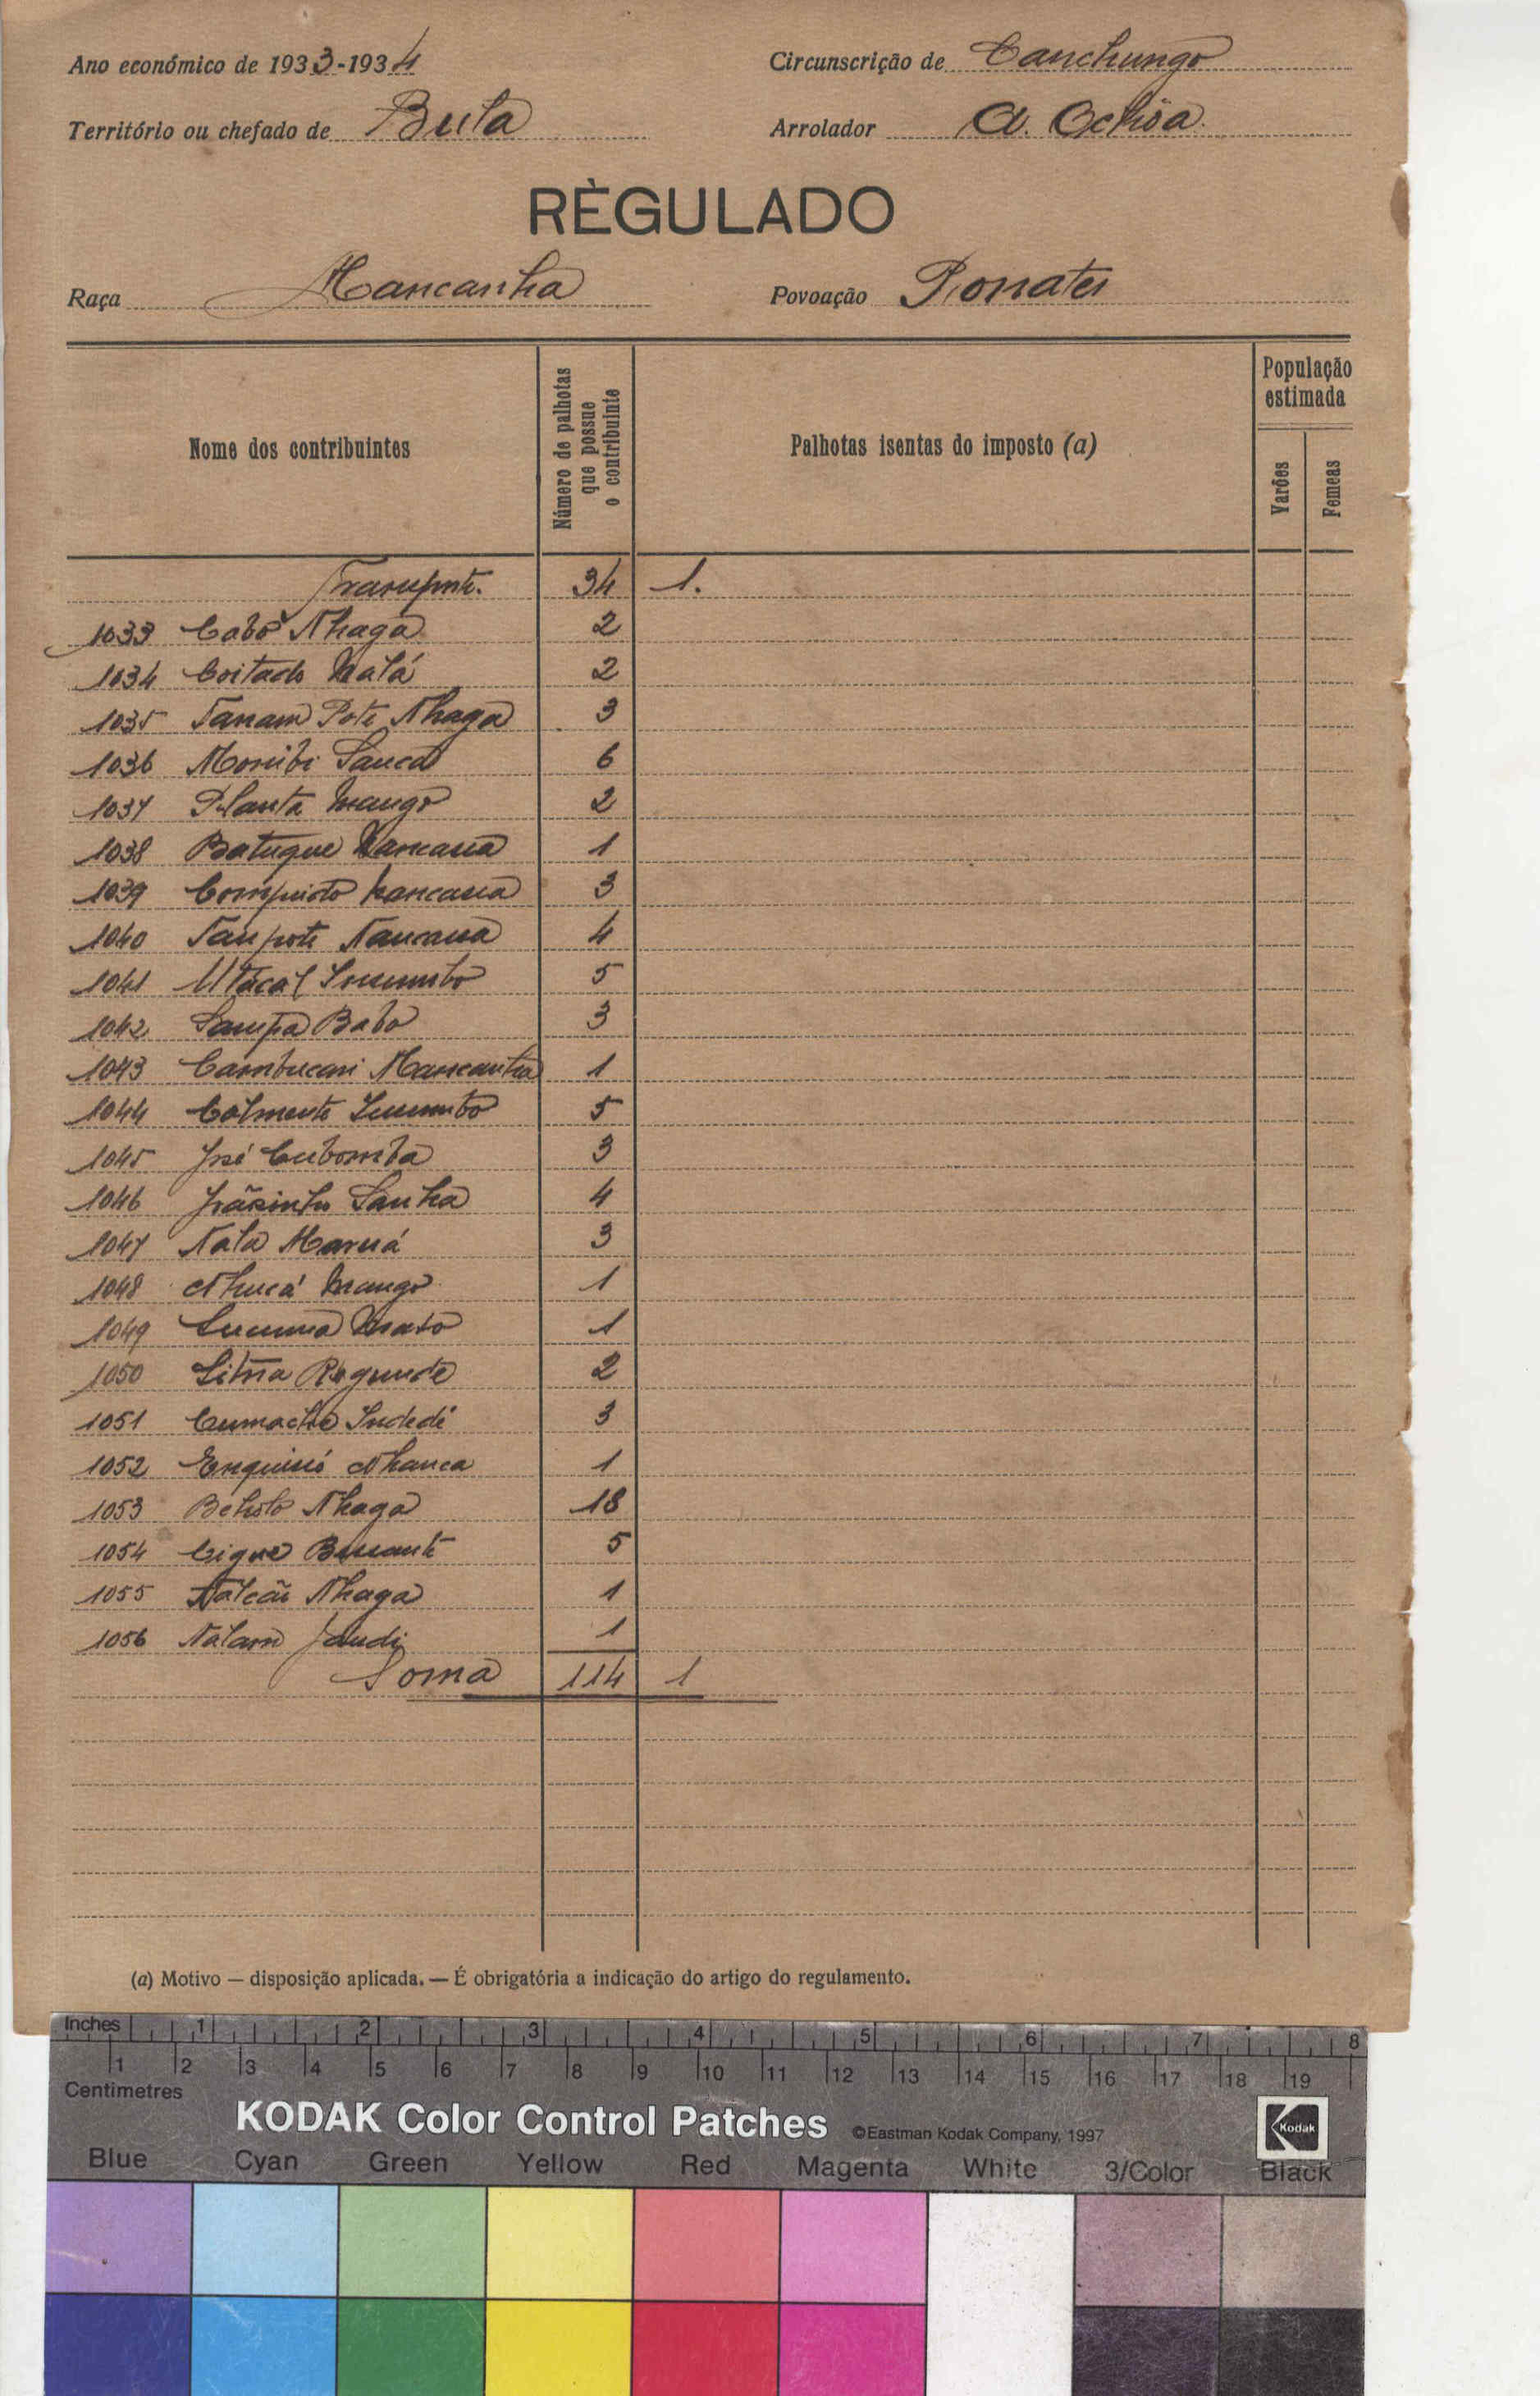 Ano económico de 1933-1934
Circunscrição de Canchungo
Território ou chefado de Bula
Arrolador A. Ochôa
RÈGULADO
Raça Mancanha
Povoação Ponate
Nome dos contribuintes
Número de palhotas que possue o contribuinte
Palhotas isentas do imposto (a)
População estimada
Varões
Femeas
Transporte. 34 1.
1033 Cabó Nhaga 2
1034 Coitado Natá 2
1035 Tanam Pote Nhaga 3
1036 Monibi Sanca 6
1037 Planta Mango 2
1038 Batuque Nancana 1
1039 Comprido Nancana 3
1040 Tanpote Nancana 4
1041 4 5
1042 Sampa Babo 3
1043 Cambucari Mancanha 1
1044 Colmente 5
1045 José Cubomba 3
1046 Joãsinho Sanha 4
1047 Nala Maruá 3
1048 Nhucá Mango 1
1049 1
1050 2
1051 Cumache Indedi 3
1052 Nhanca 1
1053 Nhaga 18
1054 Cigne 5
1055 Nalcão Nhaga 1
1056 Nalam Jandi 1
Soma 114 1
(a) Motivo — disposição aplicada. — É obrigatória a indicação do artigo do regulamento.
Inches 1 2 3 4 5 6 7 8
1 2 3 4 5 6 7 8 9 10 11 12 13 14 15 16 17 18 19
Centimetres
KODAK Color Control Patches ©Eastman Kodak Company, 1997 Kodak
Blue Cyan Green Yellow Red Magenta White 3/Color Black